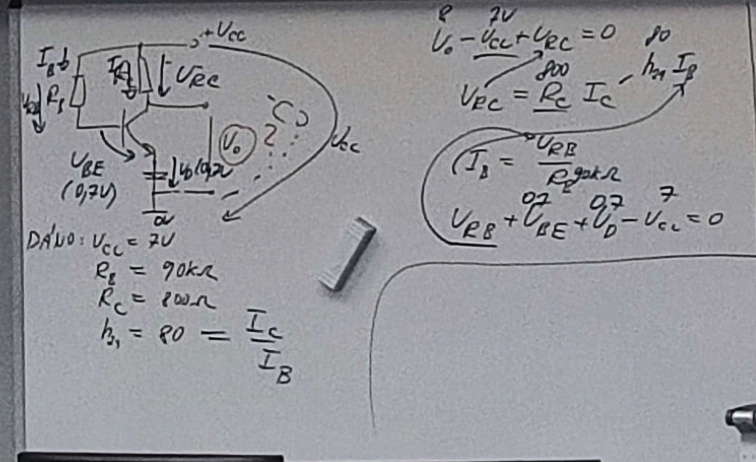 +Vcc
I_B
R_B
U_RC
U_BE
(0,7V)
U_D/0,7V
U_o
?
U_cc
0V
DÁNO: U_CC = 7V
R_B = 90kΩ
R_C = 800Ω
h_21 = 80 = I_C / I_B
7V 80
U_o - U_CC + U_RC = 0
800 h_21 I_B
U_RC = R_C I_C
I_B = U_RB / R_B 90kΩ
0,7 0,7 7
U_RB + U_BE + U_D - U_CC = 0